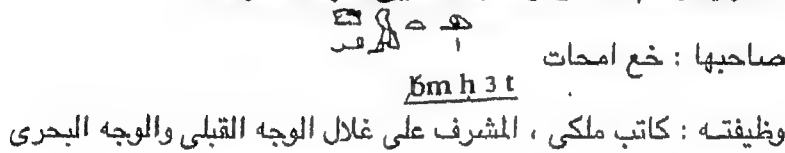 صاحبها : خع امحات
ḫm h 3 t
وظيفتـه : كاتب ملكى ، المشرف على غلال الوجه القبلى والوجه البحرى